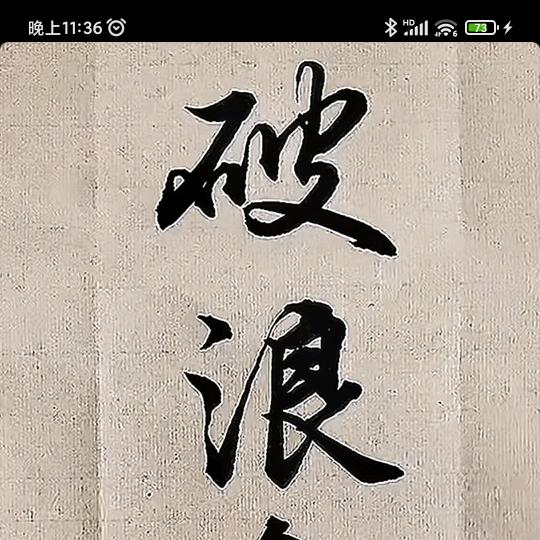 晚上11:36
HD
6
73
破
浪